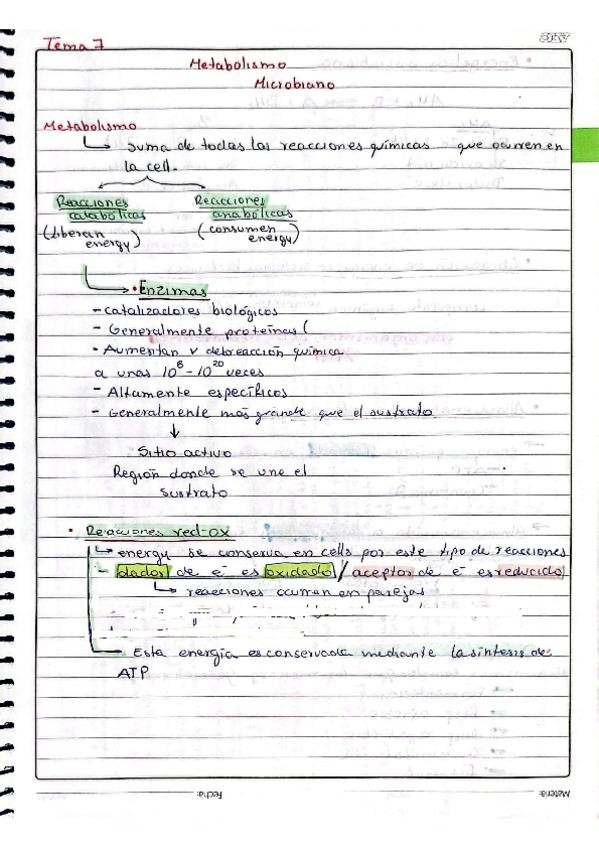 Tema 7
Metabolismo
Microbiano
Metabolismo
suma de todas las reacciones químicas que ocurren en
la cell.
Reacciones catabólicas
(liberan energy)
Reacciones anabólicas
(consumen energy)
• Enzimas
- catalizadores biológicos
- Generalmente proteínas (
- Aumentan v de reacción química
a unas 10^8 - 10^20 veces
- Altamente específicos
- Generalmente más grande que el sustrato
Sitio activo
Región donde se une el
sustrato
• Reacciones red-ox
energy se conserva en cells por este tipo de reacciones
- dador de e⁻ es oxidado / aceptor de e⁻ es reducido
reacciones ocurren en parejas
Esta energía es conservada mediante la síntesis de
ATP
Fecha:
Materia: